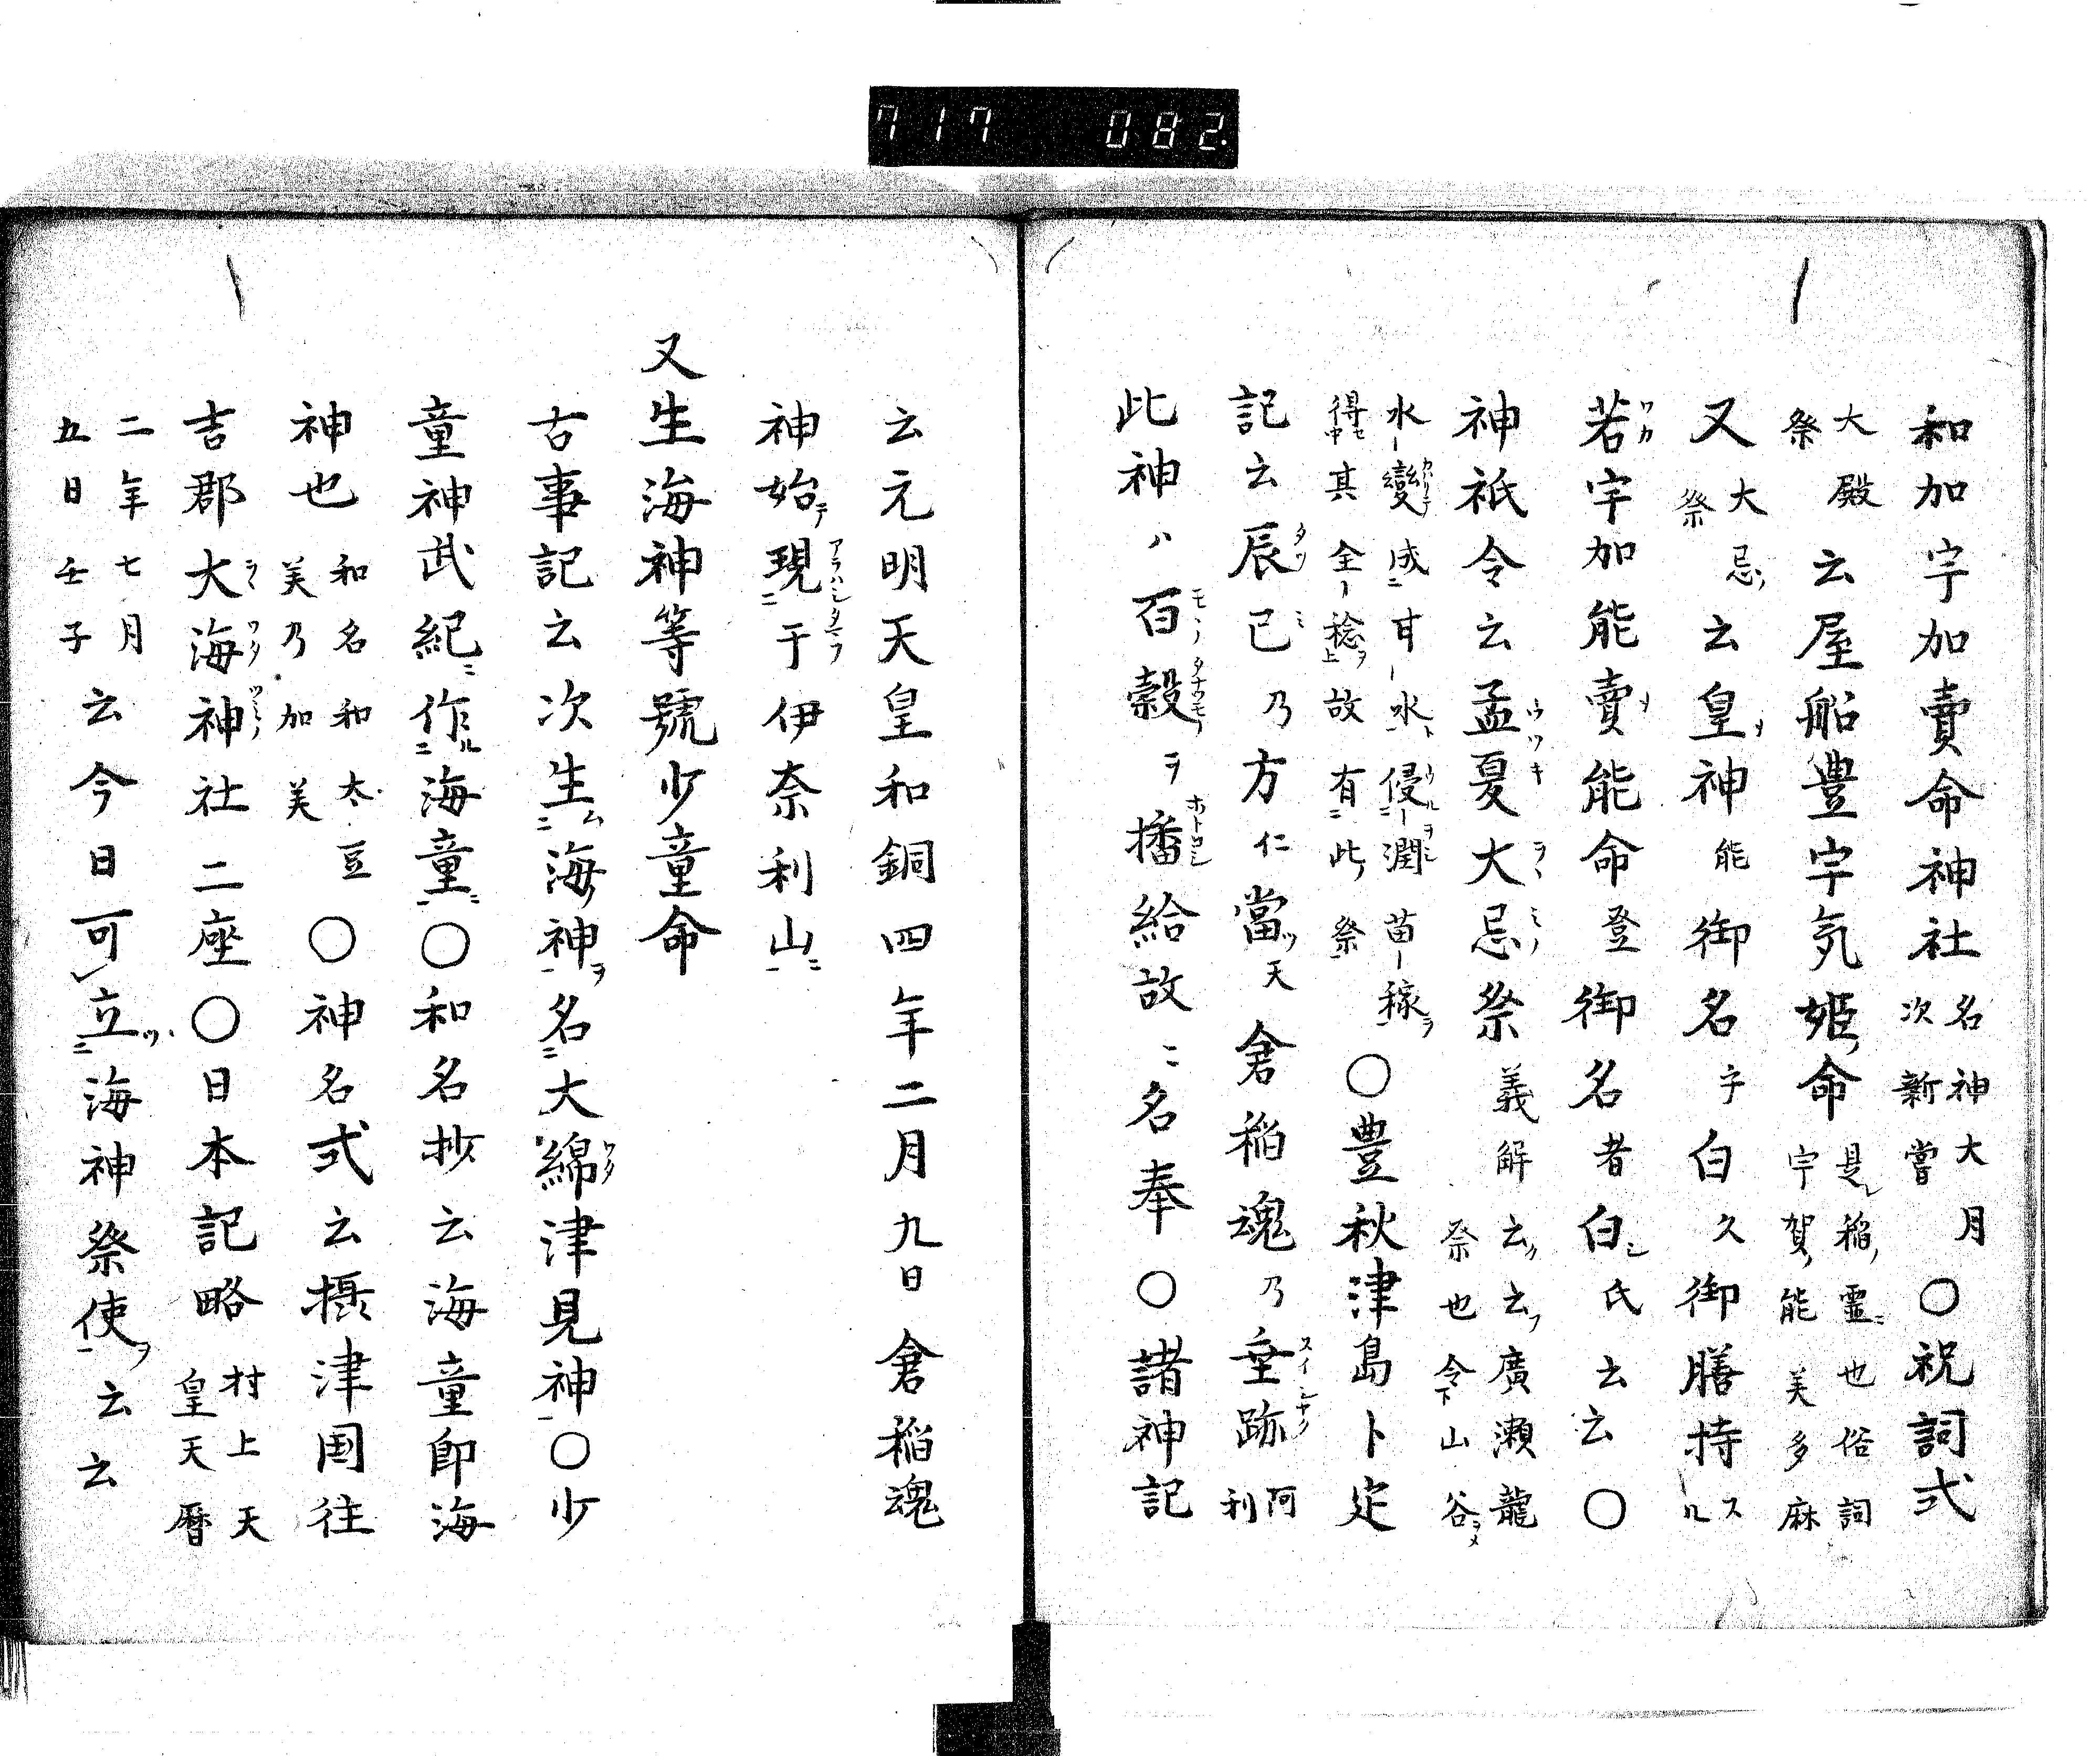 717 082.
和加宇加賣命神社 名神大月次新嘗 〇祝詞式
大殿祭 云屋船豊宇気姫命 是稲霊也俗詞宇賀能美多麻
又 大忌祭 云皇神能御名字白久御膳持スル
若宇加能賣能命登御名者白氏云云〇
神祇令云孟夏大忌祭 義解云云廣瀬龍祭也令山谷
水変成甘水侵潤苗稼得其全稔故有此祭 〇豊秋津島卜定
記云辰巳乃方仁當天倉稲魂乃垂跡 阿利
此神ハ百穀ヲ播給故ニ名奉〇諸神記
云元明天皇和銅四年二月九日倉稲魂
神始テ現于伊奈利山
又生海神等號少童命
古事記云次生海神名大綿津見神〇少
童神武紀作海童〇和名抄云海童即海
神也 和名和太豆美乃加美 〇神名式云攝津国住
吉郡大海神社二座〇日本記略 村上天皇天暦
二年七月五日壬子 云今日可立海神祭使云云